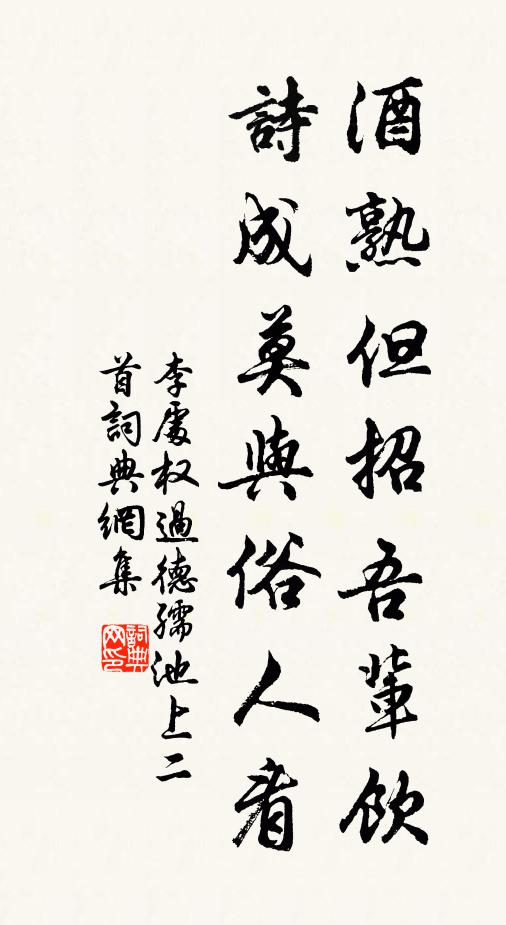 酒熟但招吾輩飲
詩成莫與俗人看
李處权過德孺池上二
首詞典網集
詞典
网印